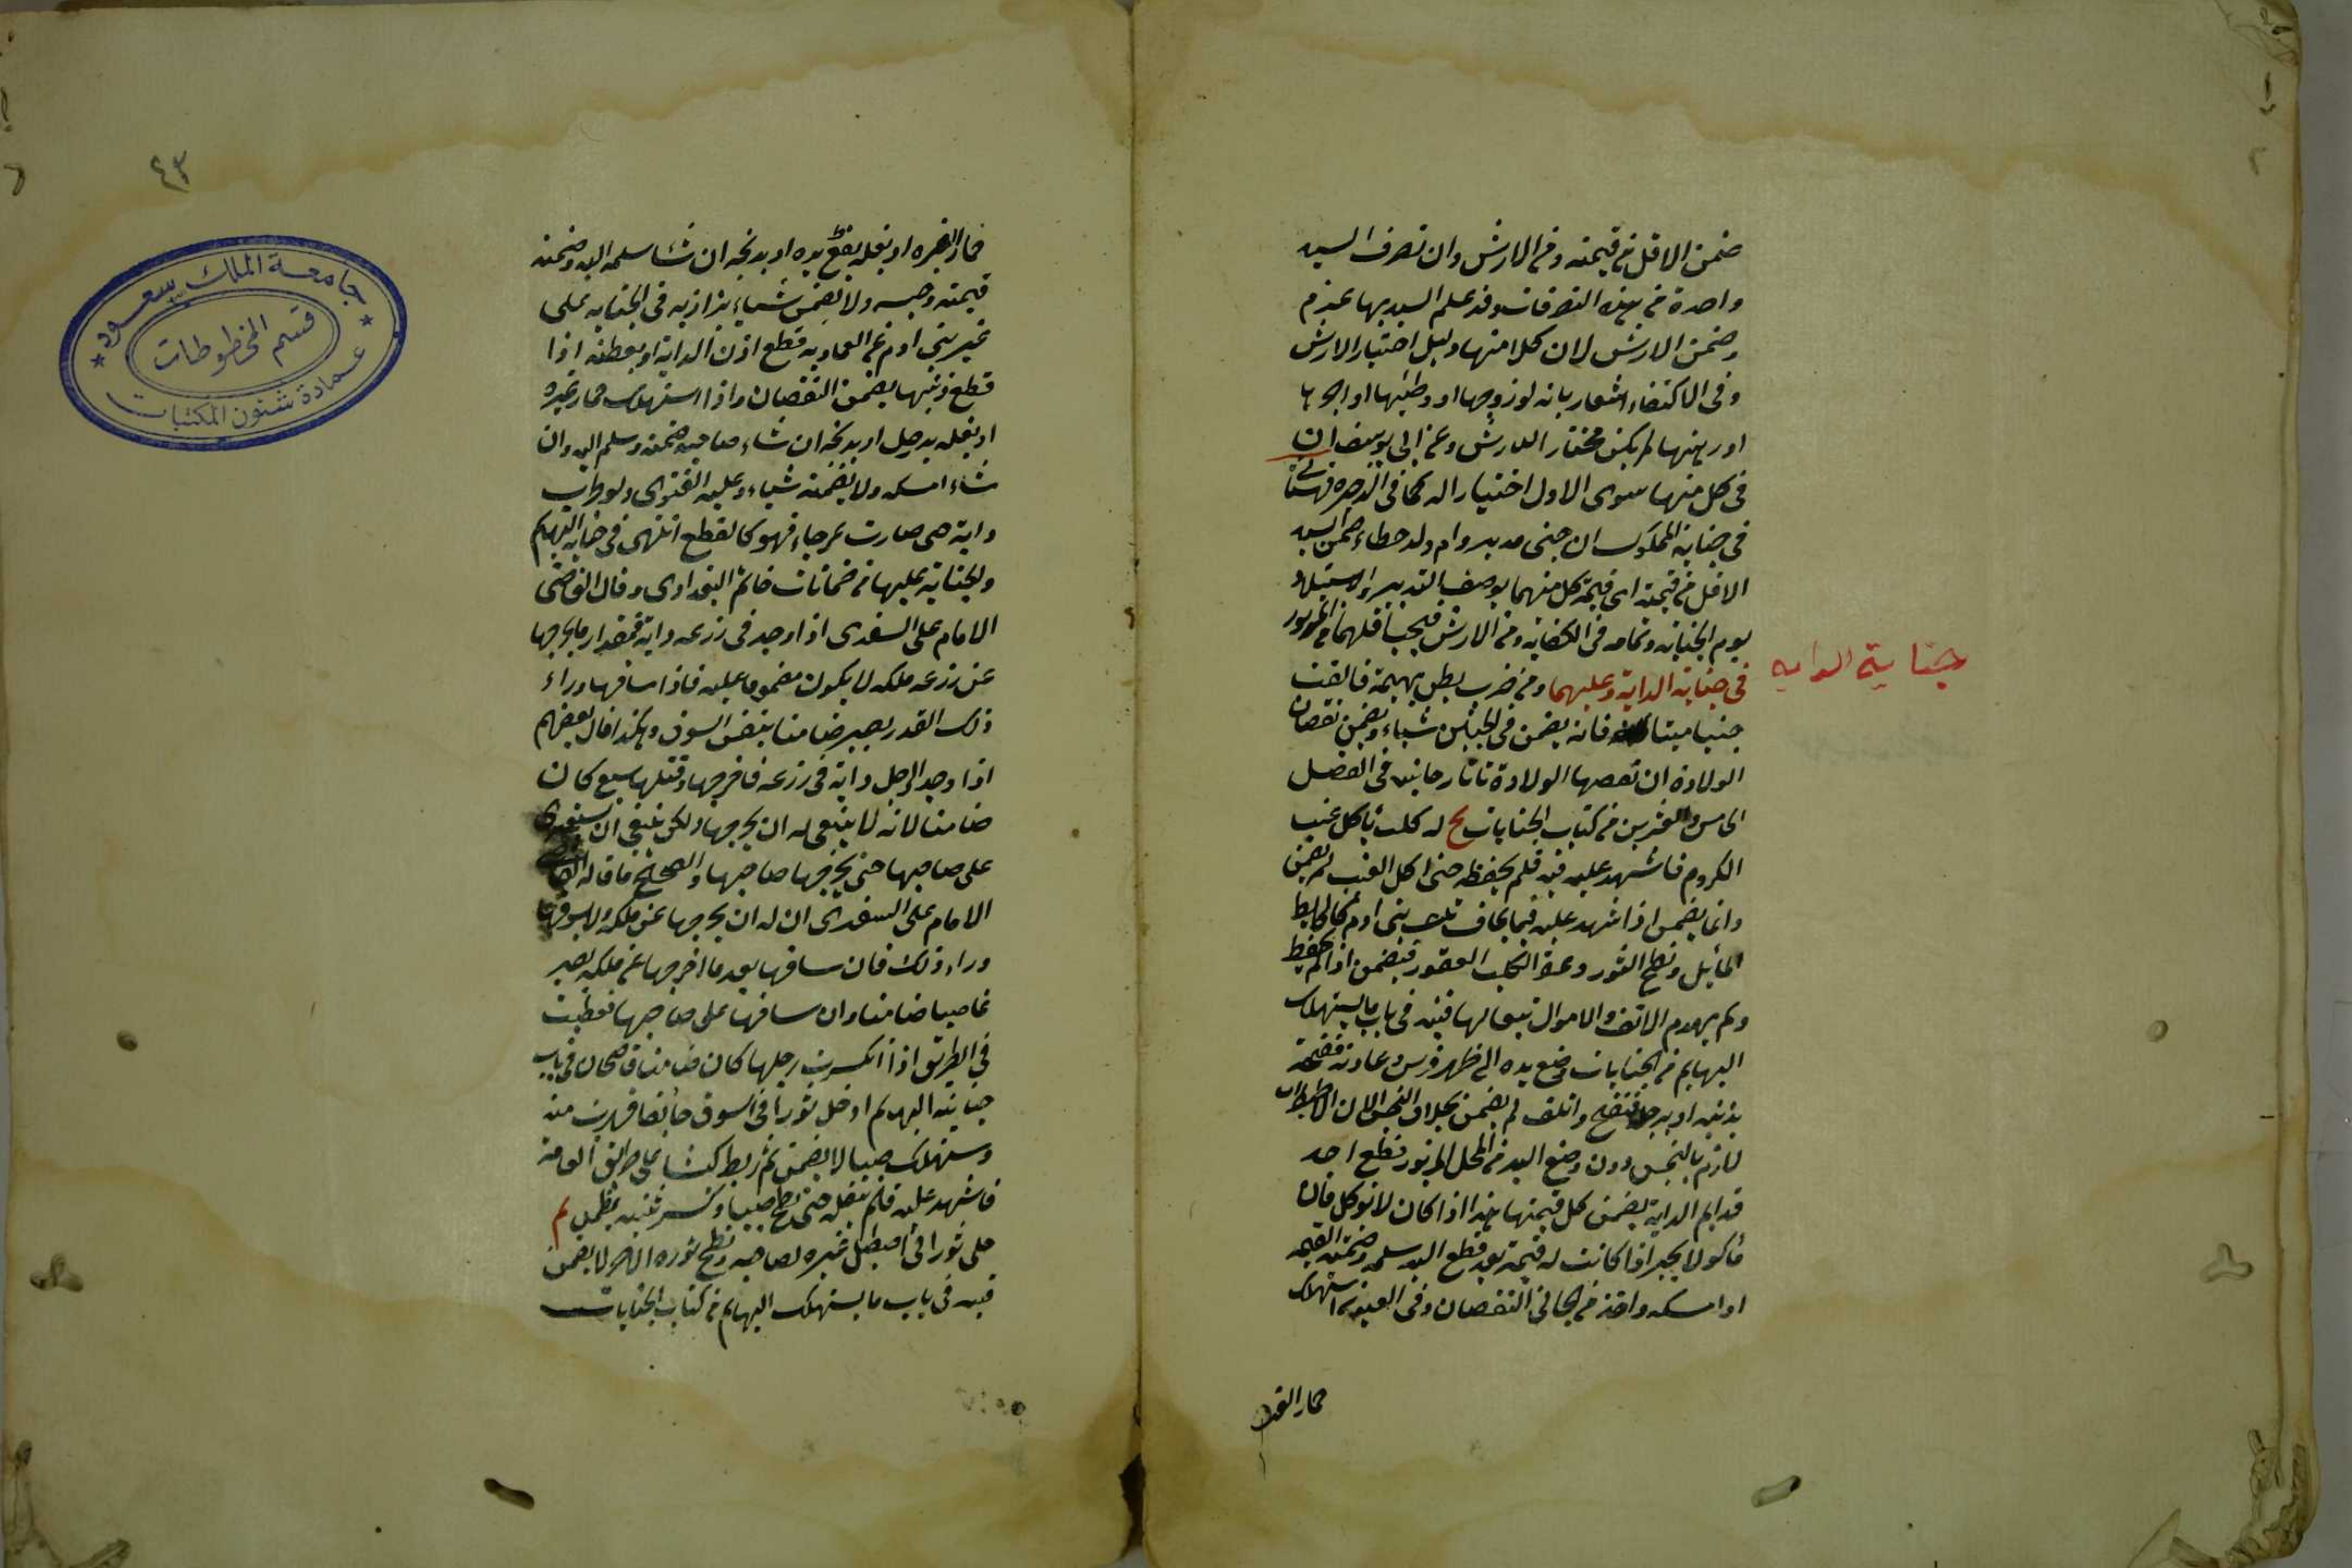 ضمن الاقل من قيمته ومن الارش وان تصرف السيد
واحدة من هذه التصرفات وقد علم السيد بها غرم
وضمن الارش لان كلا منها دليل اختيار الارش
وفى الاكتفاء اشعار بانه لو زوجها او وطئها او اجرها
او رهنها لم يكن مختار الارش وعن ابى يوسف ان
فى كل منها سوى الاول اختيارا له كما فى الذخيره قهستانى
فى جناية المملوك ان جنى مدبر وام ولد خطاء ضمن السيد
الاقل من قيمته اى قيمة كل منهما بوصف التدبير والاستيلاد
يوم الجناية وتمامه فى الكفاية ومن الارش فيجب اقلهما من المزبور
جناية الدابه
فى جناية الدابة وعليهما ومن ضرب بطن بهيمة فالقت
جنينا ميتا فانه يضمن فى الجنين شياء ويضمن نقصان
الولادة ان نقصها الولادة تاتارخانيه فى الفصل
الخامس والعشرين من كتاب الجنايات له كلب ياكل عنب
الكروم فاشهد عليه فيه فلم يحفظه حتى اكل العنب لم يضمن
وانما يضمن اذا اشهد عليه فيما يخاف تلف بنى ادم كالحايط
المايل ونطح الثور وعض الكلب العقور فيضمن اذا لم يحفظ
ولم يهدم الاتلف والاموال تبعا لها قنيه فى باب ما يستهلك
البهايم من الجنايات وضع يده الى ظهر فرس وعادته
بذنبه او برجله واتلف لم يضمن بخلاف النخس لان الاضطراب
لازم بالنخس دون وضع اليد من المحل المزبور قطع احد
قوايم الدابة يضمن كل قيمتها هذا اذا كان لا توكل فان
ماكولا يخير اذا كانت له قيمة بعد قطع اليد سلمه وضمنه القيمه
او امسكه واخذ من الجانى النقصان وفى العيون استهلك
حمار الغير
٤٣
حمار الغيره او بغله بقطع يده او بذبحه ان شا سلمه اليه وضمنه
قيمته وحبسه ولا يضمن شياء بزازيه فى الجنايه على
غير بنى ادم عن العماديه قطع اذن الدابة او بعضه اذا
قطع ذنبها يضمن النقصان واذا استهلك حمار غيره
او بغله بدخل او بذبحه ان شاء صاحبه ضمنه وسلم اليه وان
شاء امسكه ولا يضمنه شياء وعليه الفتوى ولو ضرب
دابة حتى صارت عرجاء فهو كالقطع انتهى فى جناية البهايم
والجناية عليها من ضمانات غانم البغدادى وقال القاضى
الامام على السغدى اذا وجد فى زرعه دابة فمقدار ما يخرجها
عن زرعه ملكه لا يكون مضمونا عليه فاذا ساقها وراء
ذلك القدر يصير ضامنا بنفس السوق وهكذا قال بعضهم
اذا وجد الرجل دابة فى زرعه فاخرجها وقتلها سبع كان
ضامنا لانه لا ينبغى له ان يخرجها ولكن ينبغى ان يستعدى
على صاحبها حتى يخرجها صاحبها والصحيح ما قاله القاضى
الامام على السغدى ان له ان يخرجها عن ملكه ولا يسوقها
وراء ذلك فان ساقها بعد ما اخرجها عن ملكه يصير
غاصبا ضامنا وان ساقها على صاحبها فعطبت
فى الطريق اذا انكسرت رجلها كان ضامنا قاضيخان فى باب
جناية البهايم ادخل ثورا فى السوق خائضا فهرب منه
وستهلك صبيا لا يضمن ثم ربط كبشا على طريق العامة
فاشهد عليه فلم ينقله حتى نطح صبيا وكسر ثنيه يضمن
على ثورا فى اصطبل غيره لصاحبه ونطح ثوره الاخر لا يضمن
قنيه فى باب ما يستهلك البهايم من كتاب الجنايات
جامعة الملك سعود
قسم المخطوطات
عمادة شئون المكتبات